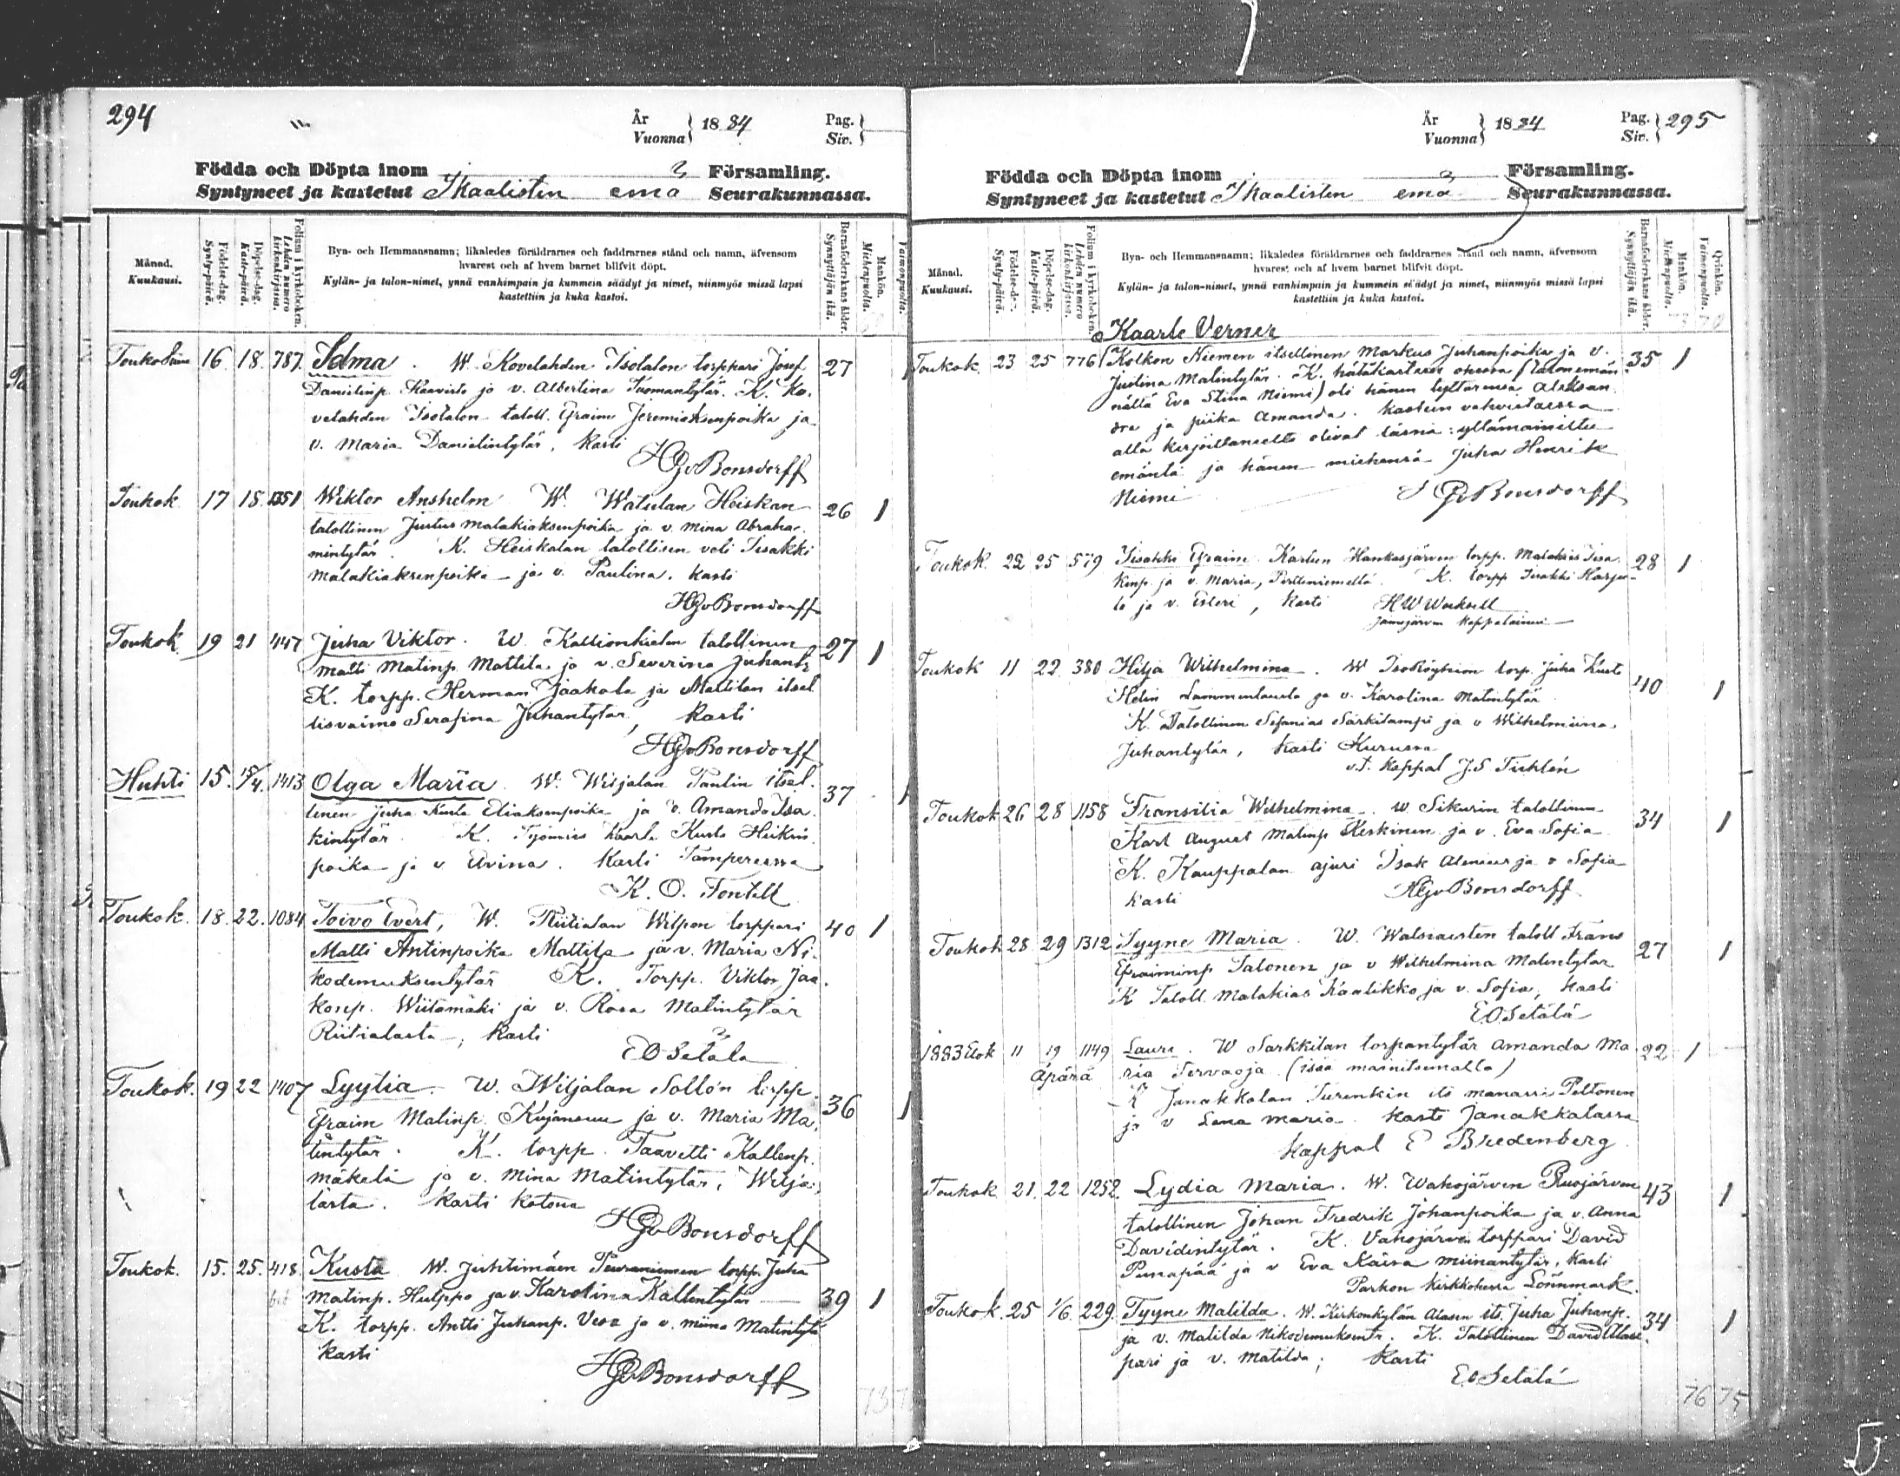 294
År
Vuonna } 1884
Pag.
Siv. }
Födda och Döpta inom Församling.
Syntyneet ja kastetut Ikaalisten emä Seurakunnassa.
Månad.
Kuukausi.
Födelse-dag.
Synty-päivä.
Döpelse-dag.
Kaste-päivä.
Folium i kyrkoboken.
Lehden numero kirkonkirjassa.
Bya- och Hemmansnamn; likaledes föräldrarnes och faddrarnes stånd och namn, äfvensom
hvarest och af hvem barnet blifvit döpt.
Kylän- ja talon-nimet, ynnä vanhimpain ja kummein säädyt ja nimet, niinmyös missä lapsi
kastettiin ja kuka kastoi.
Barnaföderskans ålder.
Synnyttäjän ikä.
Mankön.
Miehenpuolta.
Vaimonpuolta.
Toukokuu 16 18 787 Selma. W. Kovelahden Isotalon torppari Josef 27
Danielinp. Haavisto ja v. Albertina Tuomantytär. K. Ko-
velahden Isotalon taloll. Efraim Jeremiaksenpoika ja
v. Maria Danielintytär, kasti
HGvBonsdorff
Toukok 17 18 1351 Wiktor Anshelm W. Watulan Heiskan 26 1
talollinen Justus Malakiaksenpoika ja v. Mina Abraha-
mintytär. K. Heiskalan talollisen veli Iisakki
Malakiaksenpoika ja v. Paulina. kasti
HGvBonsdorff
Toukok 19 21 447 Juha Viktor. W. talollinen 27 1
Matti Matinp. Mattila ja v. Severina Juhant.
K. torpp. Herman Jaakola ja Mattilan itsel
lisvaimo Serafina Juhantytär, kasti
HGvBonsdorff
Huhti 15. 15/4. 1413 Olga Maria. W. Wiljalan Paulin itsel- 37 1
linen Juha Kusta Eliaksenpoika ja v. Amanda Isa-
kintytär. K. Työmies Kaarle Kusta Heikin
poika ja v Evina. Kasti Tampereessa
K. O. Fontell
Toukok. 18. 22. 1084 Toivo Evert, W. Riitialan Wilpon torppari 40 1
Matti Antinpoika Mattila ja v. Maria Ni-
kodemuksentytär K. Torpp. Viktor Jaa-
konp. Wiitamäki ja v. Rosa Matintytär
Riitialasta, kasti
E O Setälä
Toukok. 19 22 1407 Lyytia. W. Wiljalan Sollon torpp. 36 1
Efraim Matinp. Kujansuu ja v. Maria Ma-
tintytär. K. torpp. Taavetti Kallenp.
mäkelä ja v. Mina Matintytär, Wilja-
lasta. Kasti kotona
HGvBonsdorff
Toukok. 15. 25. 418 Kusta W. Juhtimäen torpp. Juha
Matinp. Hulppo ja v. Karolina Kallentytär 39 1
K. torpp. Antti Juhanp. Vesa ja v. miina Matintytä
kasti
HGvBonsdorff
År
Vuonna } 1884
Pag.
Siv. } 295
Födda och Döpta inom Församling.
Syntyneet ja kastetut Ikaalisten emä Seurakunnassa.
Månad.
Kuukausi.
Födelse-dag.
Synty-päivä.
Döpelse-dag.
Kaste-päivä.
Folium i kyrkoboken.
Lehden numero kirkonkirjassa.
Bya- och Hemmansnamn; likaledes föräldrarnes och faddrarnes stånd och namn, äfvensom
hvarest och af hvem barnet blifvit döpt.
Kylän- ja talon-nimet, ynnä vanhimpain ja kummein säädyt ja nimet, niinmyös missä lapsi
kastettiin ja kuka kastoi.
Barnaföderskans ålder.
Synnyttäjän ikä.
Mankön.
Miehenpuolta.
Qvinkön.
Vaimonpuolta.
Kaarle Verner
Toukok 23 25 776 Kolkon Niemen itsellinen Markus Juhanpoika ja v. 35 1
Justina Matintytär. K. hätäkasteen ohessa (talonemän-
nällä Eva Stina Niemi) oli hänen tyttärensä Aleksan-
dra ja piika Amanda. Kasteen vahvistaessa
alla kirjoittaneelta olivat läsnä: yllämainittu
emäntä ja hänen miehensä Juha Henrik
Niemi HGvBonsdorff
Toukok 22 25 579 Iisakki Efraim. Kartun Hankasjärven torpp. Malakias Iisa- 28 1
kinp. ja v. Maria, Perttuniemeltä. K. torpp Iisakki Harju-
la ja v. Esteri, kasti H W Wacksell
Jämijärven kappalainen
Toukok 11 22 380 Hilja Wilhelmina. W Isoröyhiön torp. Juha Kusta 40 1
Helin Lamminlausta ja v. Karolina Matintytär
K. Talollinen Sefanias Särkilampi ja v Wilhelmiina
Juhantytär, kasti Kurussa
v.t. kappal J.S Tichlén
Toukok 26 28 1158 Fransilia Wilhelmina. W Sikurin talollinen 34 1
Karl August Matinp Keskinen ja v. Eva Sofia
K. Kauppalan ajuri Isak Alenius ja v Sofia
kasti HGvBonsdorff
Toukok 28 29 1312 Tyyne Maria. W. taloll Frans 27 1
Efraiminp Salonen ja v Wilhelmina Matintytär
K Taloll Malakias Kaalikko ja v. Sofia, kasti
E.O Setälä
1883 Elok 11 19 1149 Lauri. W Sarkkilan torpantytär Amanda Ma 22 1
äpärä ria Servaoja (isää mainitsematta)
K Janakkalan Turenkin its Peltonen
ja v Lena maria kasti Janakkalassa
Kappal E Bredenberg
Toukok 21 22 1252 Lydia Maria. W. Wahojärven Ruojärven 43 1
talollinen Johan Fredrik Johanpoika ja v. Anna
Davidintytär. K. Vahojärven torppari David
Punapää ja v Eva Kaisa miinantytär, kasti
Parkon kirkkoherra Lönnmark.
Toukok. 25 1/6 229 Tyyne Matilda. W. Kirkonkylän Alasen its Juha Juhanp. 34 1
ja v. Matilda Nikodemuksentr. K. Talollinen David Alase-
pari ja v. Matilda; kasti
E.O Setälä
76 75